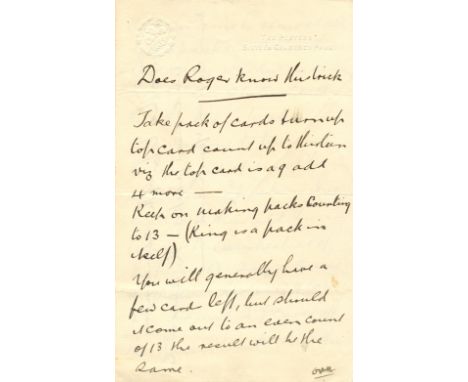 "THE PLAYERS"
SIXTEEN GRAMERCY PARK
Does Roger know this trick
Take pack of cards turn up
top card count up to thirteen
viz the top card is a 9 add
4 more —
Keep on making packs counting
to 13 – (King is a pack in
itself)
You will generally have a
few card left, but should
it come out to an even count
of 13 the result will be the
same.
over